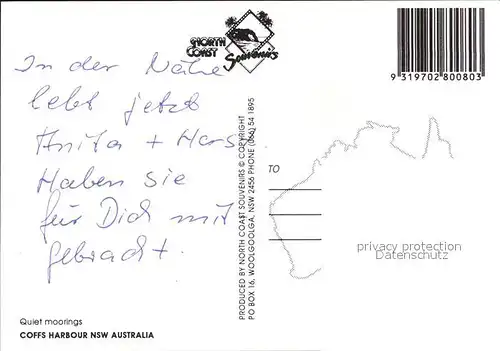 NORTH
COAST
Souvenirs
9 319702 800803
In der Nähe
lebt jetzt
Anita + Hans
Haben sie
für Dich mit
gebracht.
PRODUCED BY NORTH COAST SOUVENIRS © COPYRIGHT
PO BOX 16, WOOLGOOLGA, NSW 2456 PHONE (066) 54 1895
TO
privacy protection
Datenschutz
Quiet moorings
COFFS HARBOUR NSW AUSTRALIA